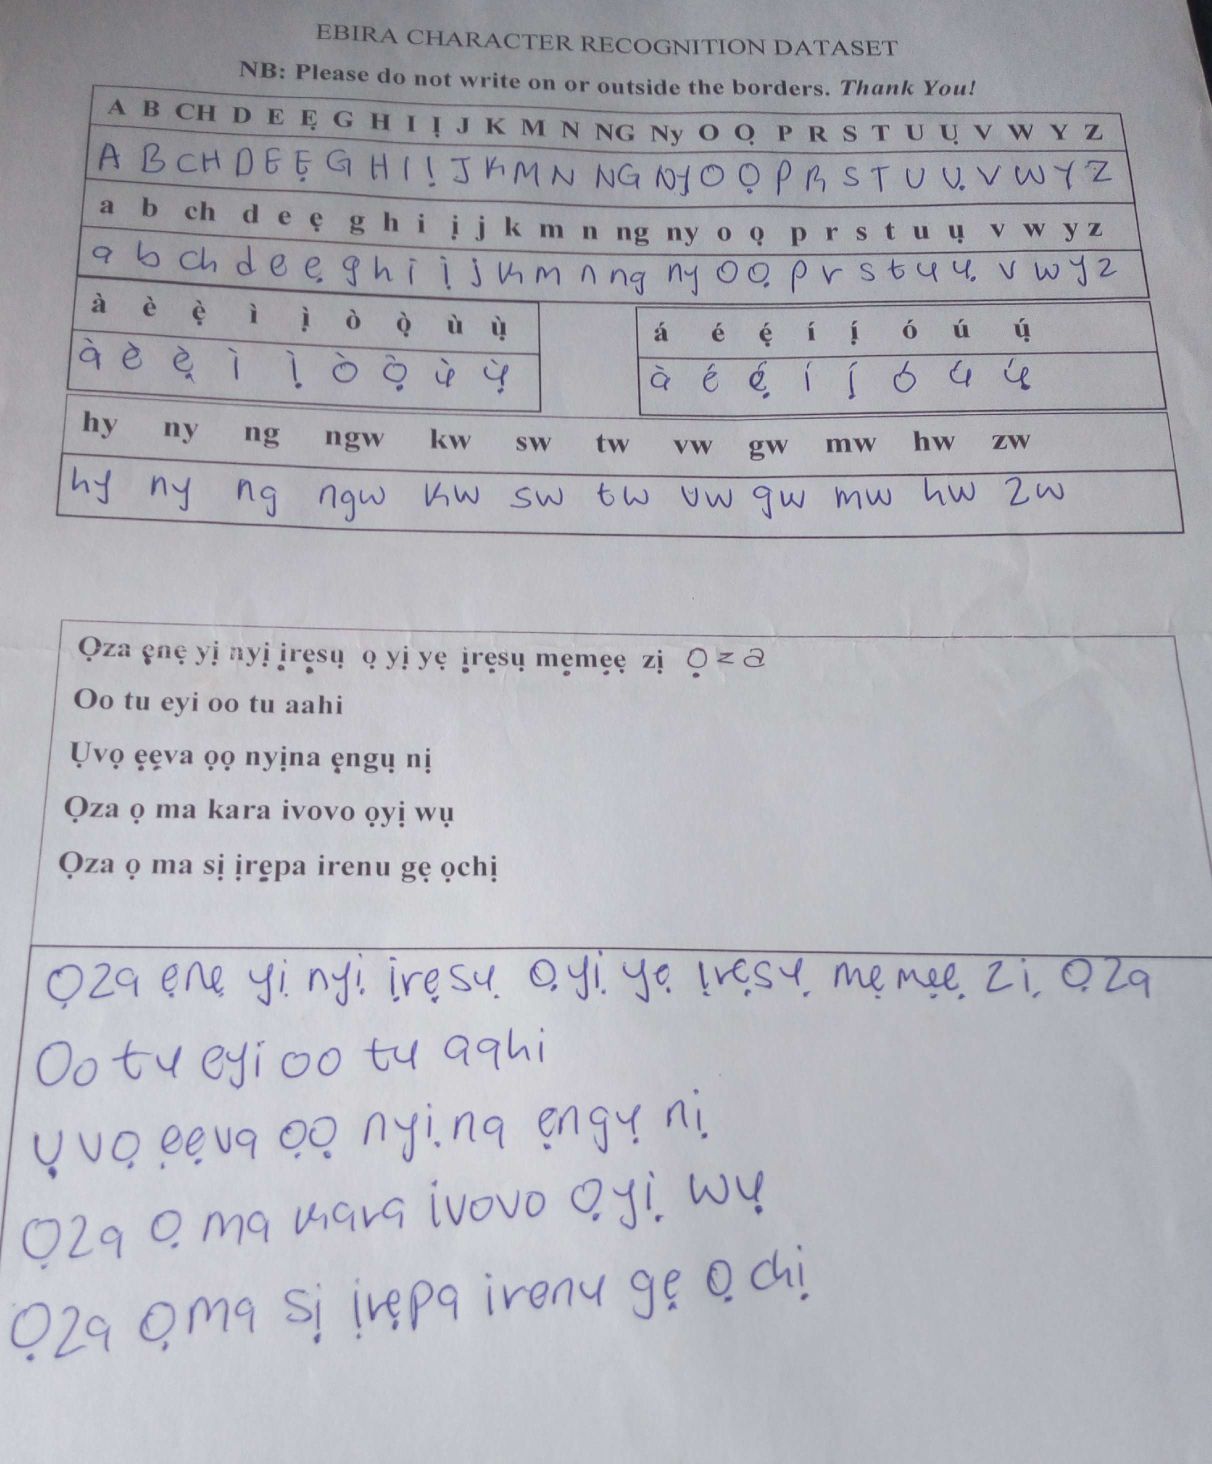 EBIRA CHARACTER RECOGNITION DATASET
NB: Please do not write on or outside the borders. Thank You!
A B CH D E Ẹ G H I Ị J K M N NG Ny O Ọ P R S T U Ụ V W Y Z
A B CH D E Ẹ G H I Ị J K M N NG Ny O Ọ P R S T U Ụ V W Y Z
a b ch d e ẹ g h i ị j k m n ng ny o ọ p r s t u ụ v w y z
a b ch d e ẹ g h i ị j k m n ng ny o ọ p r s t u ụ v w y z
à è ẹ̀ ì ị̀ ò ọ̀ ù ụ̀
à è ẹ̀ ì ị̀ ò ọ̀ ù ụ̀
á é ẹ́ í ị́ ó ú ụ́
à é ẹ́ í ị́ ó ú ụ́
hy ny ng ngw kw sw tw vw gw mw hw zw
hy ny ng ngw kw sw tw vw gw mw hw zw
Ọza ẹnẹ yị nyị ịrẹsụ ọ yị yẹ ịrẹsụ mẹmẹẹ zị Ọza
Oo tu eyi oo tu aahi
Ụvọ ẹẹva ọọ nyịna ẹngụ nị
Ọza ọ ma kara ivovo ọyị wụ
Ọza ọ ma sị ịrẹpa irenu gẹ ọchị
Ọza ẹnẹ yị nyị ịrẹsụ ọyị yẹ ịrẹsụ mẹmẹẹ zị ọza
Oo tu eyi oo tu aahi
Ụvọ ẹẹva ọọ nyịna ẹngụ nị
Ọza ọ ma kara ivovo ọyị wụ
Ọza ọ ma sị ịrẹpa irenu gẹ ọchị